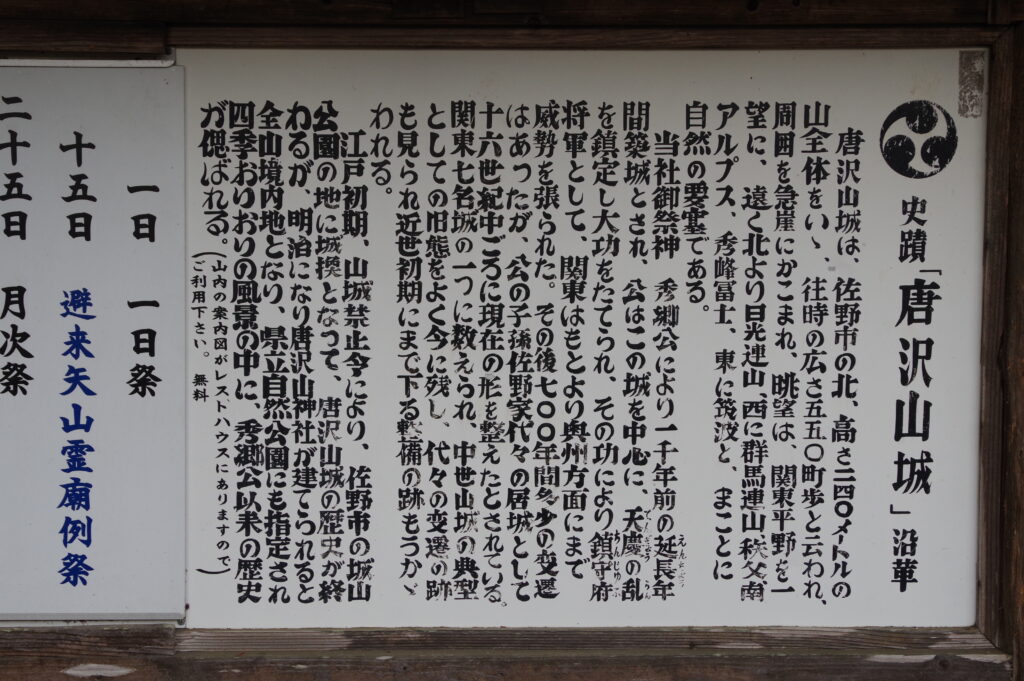 史蹟「唐沢山城」沿革
唐沢山城は、佐野市の北、高さ二四〇メートルの
山全体をいゝ、往時の広さ五五〇町歩と云われ、
周囲を急崖にかこまれ、眺望は、関東平野を一
望に、遠く北より日光連山、西に群馬連山秩父南
アルプス、秀峰富士、東に筑波と、まことに
自然の要塞である。
当社御祭神 秀郷公により一千年前の延長年
間築城とされ、公はこの城を中心に、天慶の乱
を鎮定し大功をたてられ、その功により鎮守府
将軍として、関東はもとより奥州方面にまで
威勢を張られた。その後七〇〇年間多少の変遷
はあったが、公の子孫佐野家代々の居城として
十六世紀中ごろに現在の形を整えたとされている。
関東七名城の一つに数えられ、中世山城の典型
としての旧態をよく今に残し、代々の変遷の跡
も見られ近世初期にまで下る整備の跡もうかゞ
われる。
江戸初期、山城禁止令により、佐野市の城山
公園の地に城換となって、唐沢山城の歴史が終
わるが、明治になり唐沢山神社が建てられると
全山境内地となり、県立自然公園にも指定され
四季おりおりの風景の中に、秀郷公以来の歴史
が偲ばれる。(山内の案内図がレストハウスにありますので)
ご利用下さい。 無料
一日 一日祭
十五日 避来矢山霊廟例祭
二十五日 月次祭